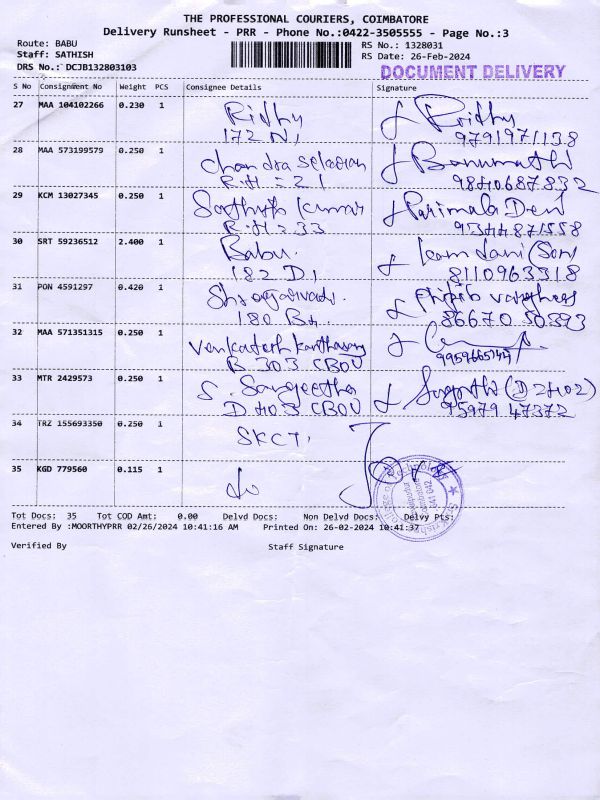 THE PROFESSIONAL COURIERS, COIMBATORE
Delivery Runsheet - PRR - Phone No.:0422-3505555 - Page No.:3
Route: BABU
Staff: SATHISH
DRS No.: DCJB132803103
RS No.: 1328031
RS Date: 26-Feb-2024
DOCUMENT DELIVERY
S No Consignment No Weight PCS Consignee Details Signature
27 MAA 104102266 0.230 1 Ridhy Pridhy
172 N1 9791971138
28 MAA 573199579 0.250 1 Chandra Banumathi
R.H = 21 9840687832
29 KCM 13027345 0.250 1 Sathish Kumar Parimala Devi
R.H = 33 9344871558
30 SRT 59236512 2.400 1 Babu. (Son)
182 D1 8110963318
31 PON 4591297 0.420 1
180 B4 86670 50393
32 MAA 571351315 0.250 1 Venkatesh
B 303 CBOU 9959665144
33 MTR 2429573 0.250 1 S. Sangeetha (D 2402)
D 403 CBOU 95979 47372
34 TRZ 155693350 0.250 1 SKCT.
35 KGD 779560 0.115 1 do
Tot Docs: 35 Tot COD Amt: 0.00 Delvd Docs: Non Delvd Docs: Delvy Pts:
Entered By :MOORTHYPRR 02/26/2024 10:41:16 AM Printed On: 26-02-2024 10:41:37
Verified By Staff Signature